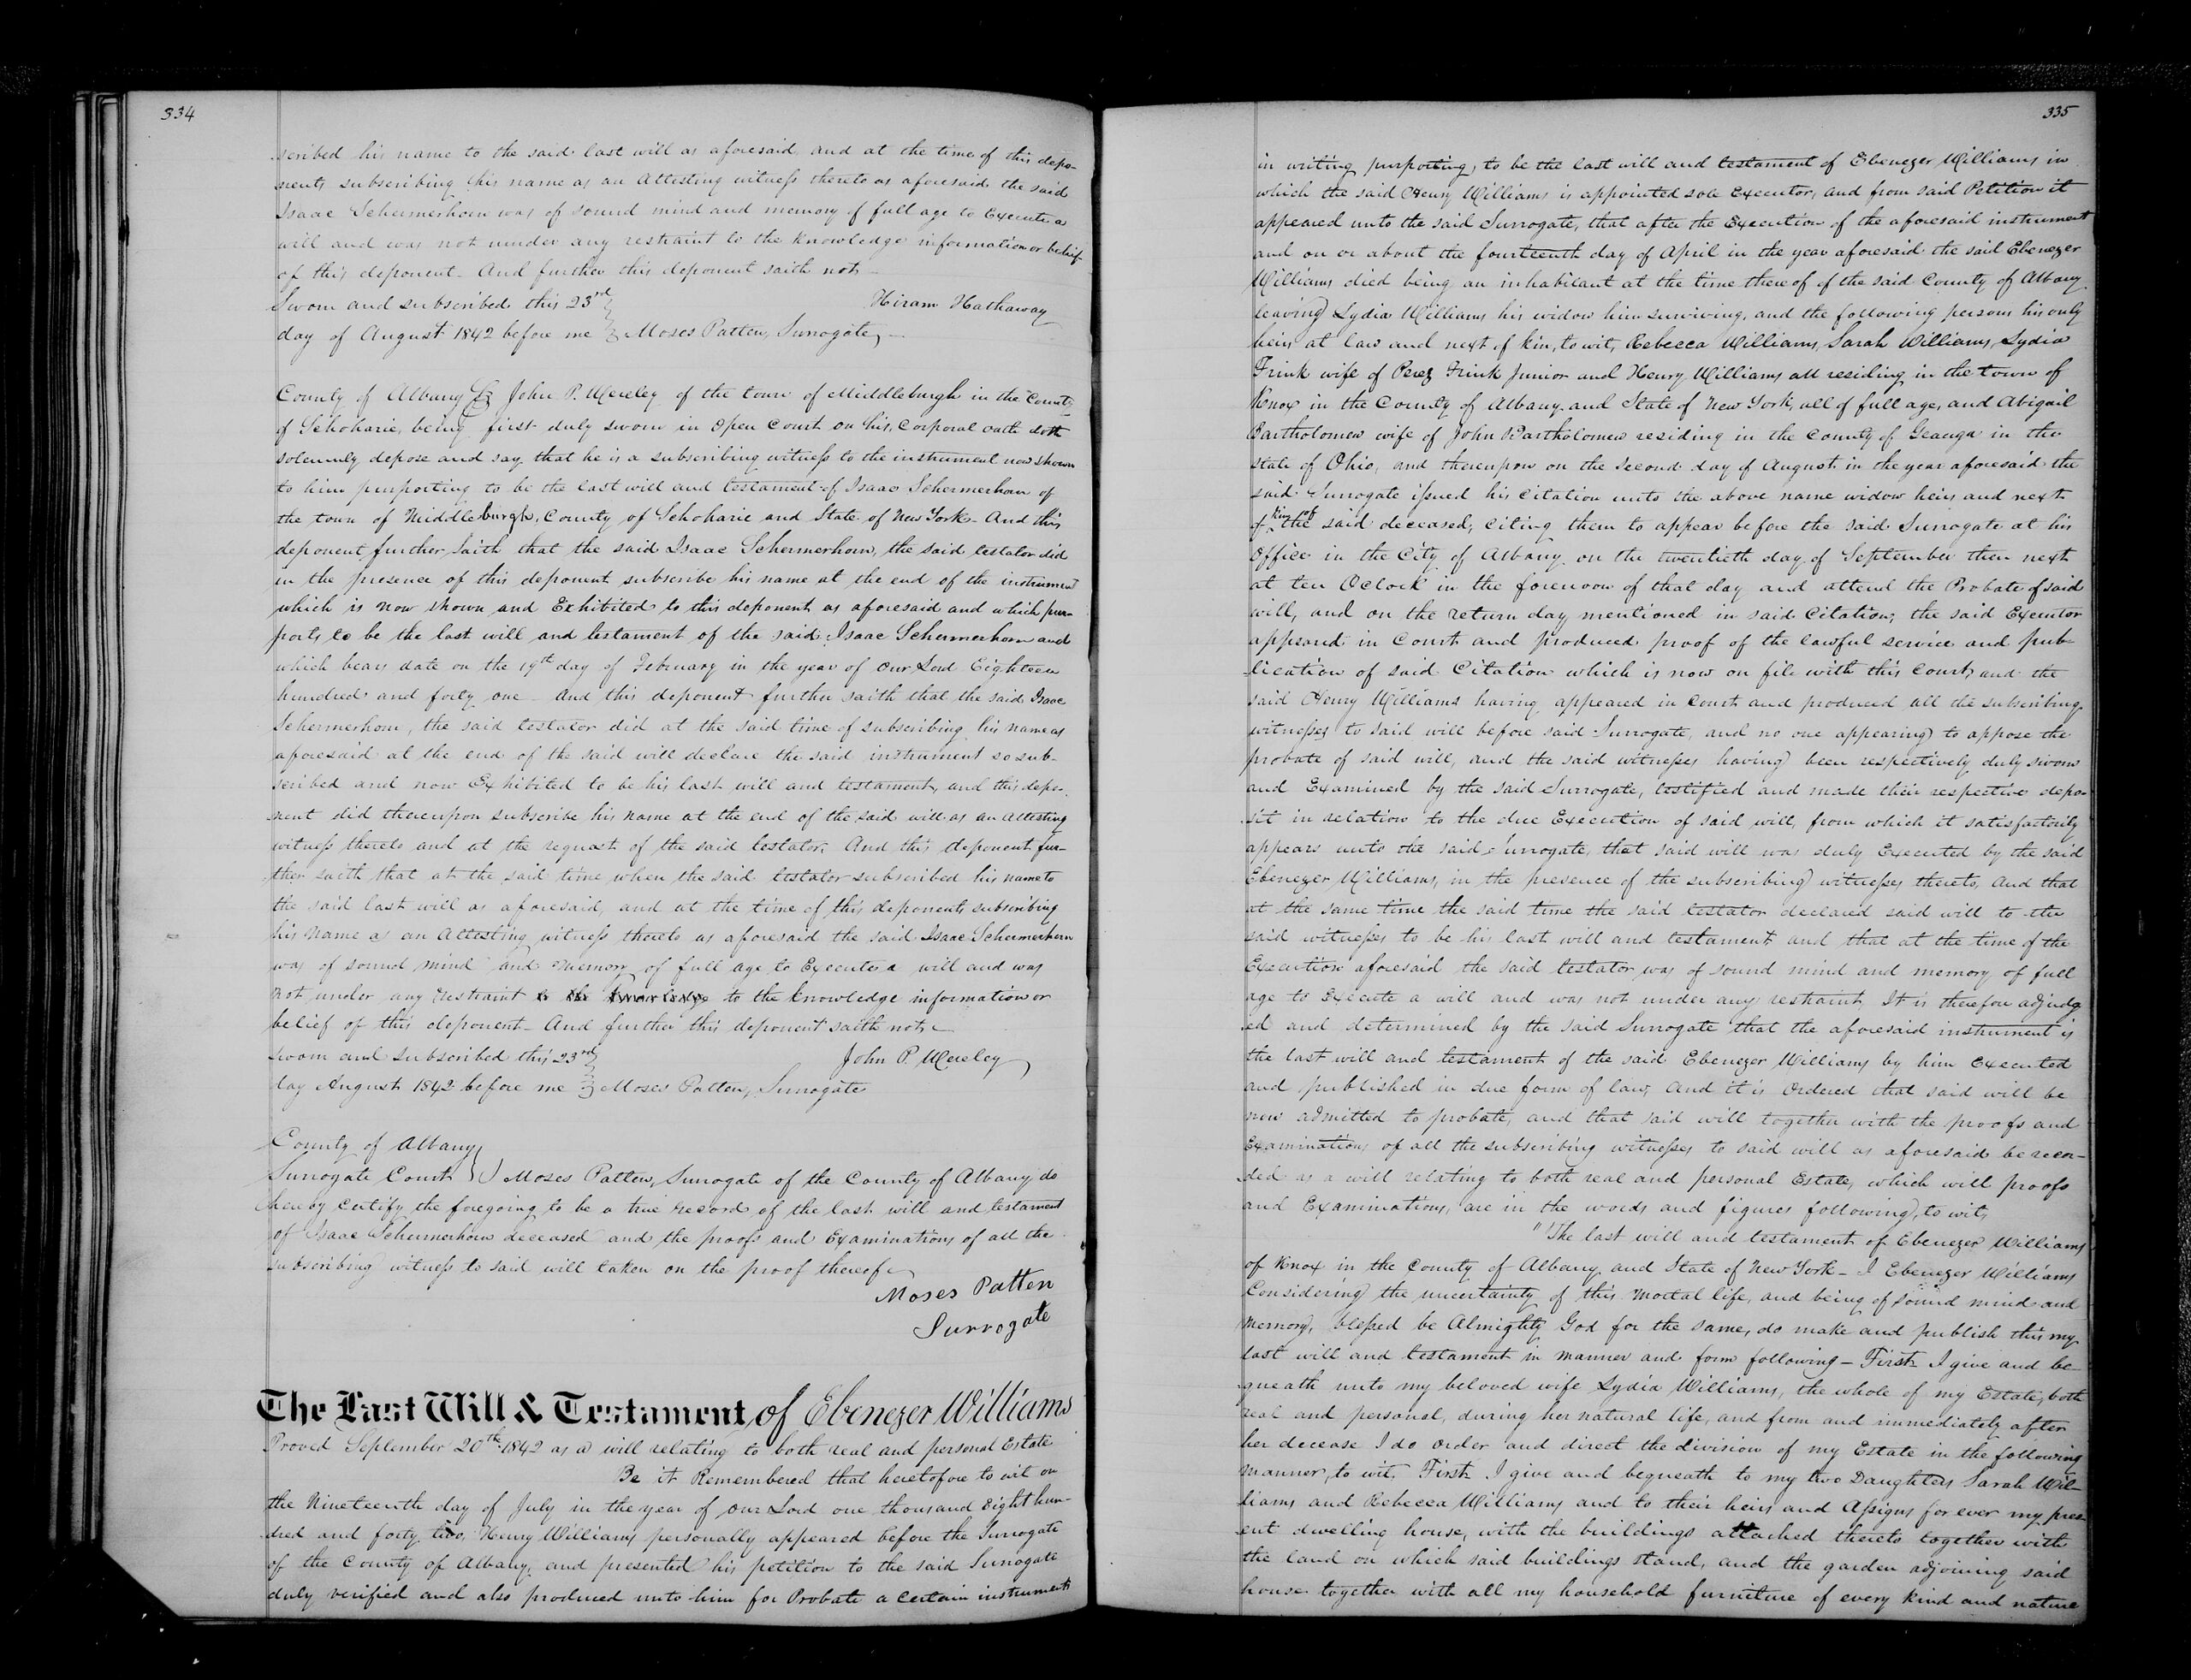 334
scribed his name to the said last will as aforesaid, and at the time of this depo-
nents subscribing his name as an Attesting witness thereto as aforesaid the said
Isaac Schermerhorn was of sound mind and memory of full age to Execute a
will and was not under any restraint to the knowledge information or belief
of this deponent. And further this deponent saith not.
Sworn and subscribed this 23rd Hiram Hathaway
day of August 1842 before me Moses Patten, Surrogate,
County of Albany Ss John P. Mereley of the town of Middleburgh in the County
of Schoharie, being first duly sworn in Open Court on his Corporal oath doth
solemnly depose and say that he is a subscribing witness to the instrument now shown
to him purporting to be the last will and testament of Isaac Schermerhorn of
the town of Middleburgh, County of Schoharie and State of New York - And this
deponent further saith that the said Isaac Schermerhorn, the said testator did
in the presence of this deponent subscribe his name at the end of the instrument
which is now shown and Exhibited to this deponent as aforesaid and which pur-
ports to be the last will and testament of the said Isaac Schermerhorn and
which bears date on the 19th day of February in the year of our Lord Eighteen
hundred and forty one - And this deponent further saith that the said Isaac
Schermerhorn, the said testator did at the said time of subscribing his name as
aforesaid at the end of the said will declare the said instrument so sub-
scribed and now Exhibited to be his last will and testament, and this depo-
nent did thereupon subscribe his name at the end of the said will as an attesting
witness thereto and at the request of the said testator. And this deponent fur-
ther saith that at the said time when the said testator subscribed his name to
the said last will as aforesaid, and at the time of this deponents subscribing
his name as an Attesting witness thereto as aforesaid the said Isaac Schermerhorn
was of sound mind and memory of full age to Execute a will and was
not under any restraint to the knowledge to the knowledge information or
belief of this deponent - And further this deponent saith not.
sworn and subscribed this 23rd John P. Mereley
day August 1842 before me Moses Patten, Surrogate
County of Albany
Surrogate Court I Moses Patten, Surrogate of the County of Albany do
hereby Certify the foregoing to be a true record of the last will and testament
of Isaac Schermerhorn deceased and the proofs and Examinations of all the
subscribing witness to said will taken on the proof thereof
Moses Patten
Surrogate
The Last Will & Testament of Ebenezer Williams
Proved September 20th 1842 as a will relating to both real and personal Estate
Be it Remembered that heretofore to wit on
the Nineteenth day of July in the year of our Lord one thousand Eight hun-
dred and forty two, Henry Williams personally appeared before the Surrogate
of the County of Albany, and presented his petition to the said Surrogate
duly verified and also produced unto him for Probate a certain instrument
335
in writing purporting to be the last will and testament of Ebenezer Williams in
which the said Henry Williams is appointed sole Executor, and from said Petition it
appeared unto the said Surrogate, that after the Execution of the aforesaid instrument
and on or about the fourteenth day of April in the year aforesaid the said Ebenezer
Williams died being an inhabitant at the time thereof of the said County of Albany
leaving Lydia Williams his widow him surviving, and the following persons his only
heirs at law and next of kin, to wit, Rebecca Williams, Sarah Williams, Lydia
Frink wife of Perez Frink Junior and Henry Williams all residing in the town of
Knox in the County of Albany and State of New York, all of full age, and Abigail
Bartholomew wife of John Bartholomew residing in the County of Geauga in the
state of Ohio, and thereupon on the second day of August in the year aforesaid the
said Surrogate issued his Citation unto the above name widow heirs and next
of kin of the said deceased, citing them to appear before the said Surrogate at his
office in the City of Albany on the twentieth day of September then next
at ten Oclock in the forenoon of that day and attend the Probate of said
will, and on the return day mentioned in said Citation, the said Executor
appeared in Court and produced proof of the lawful service and pub-
lication of said Citation which is now on file with this Court, and the
said Henry Williams having appeared in Court and produced all the subscribing
witnesses to said will before said Surrogate, and no one appearing to appose the
probate of said will, and the said witnesses having been respectively duly sworn
and Examined by the said Surrogate, testified and made their respective depo-
sit in relation to the due Execution of said will, from which it satisfactorily
appears unto the said Surrogate, that said will was duly Executed by the said
Ebenezer Williams, in the presence of the subscribing witnesses thereto, And that
at the same time the said time the said testator declared said will to the
said witnesses to be his last will and testament and that at the time of the
Execution aforesaid the said testator was of sound mind and memory of full
age to Execute a will and was not under any restraint. It is therefore adjudg
ed and determined by the said Surrogate that the aforesaid instrument is
the last will and testament of the said Ebenezer Williams by him Executed
and published in due form of law, And it is Ordered that said will be
now admitted to probate, and that said will together with the proofs and
Examinations of all the subscribing witnesses to said will as aforesaid be recor-
ded as a will relating to both real and personal Estate, which will proofs
and Examinations, are in the words and figures following, to wit,
"The last will and testament of Ebenezer Williams
of Knox in the County of Albany and State of New York - I Ebenezer Williams
Considering the uncertainty of this mortal life, and being of sound mind and
memory, blessed be Almighty God for the same, do make and publish this my
last will and testament in manner and form following - First I give and be-
queath unto my beloved wife Lydia Williams, the whole of my Estate, both
real and personal, during her natural life, and from and immediately after
her decease I do order and direct the division of my Estate in the following
manner, to wit, First I give and bequeath to my two Daughters Sarah Wil-
liams and Rebecca Williams and to their heirs and Assigns for ever my pres-
ent dwelling house, with the buildings attached thereto together with
the land on which said buildings stand, and the garden adjoining said
house together with all my household furniture of every kind and nature